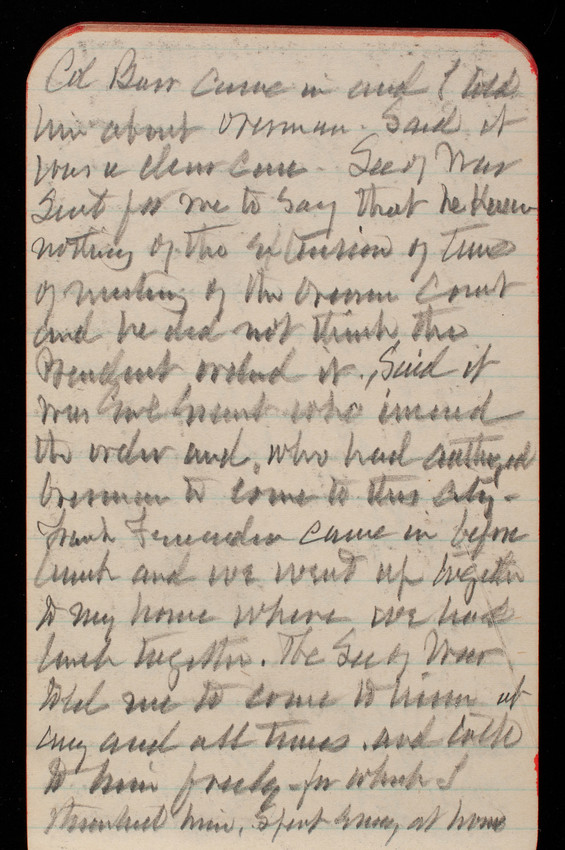 Col Barr came in and I told
him about Overman. Said it
was a clear case. Sec of War
Sent for me to say that he knew
nothing of the extension of time
of meeting of the Overman Court
and he did not think the
President ordered it. Said it
was who issued
the order and who had authorized
Overman to come to this city-
Frank came in before
lunch and we went up together
to my home where we had
lunch together. The Sec of War
told me to come to him at
any and all times and talk
to him freely - for which I
thanked him. Spent at home